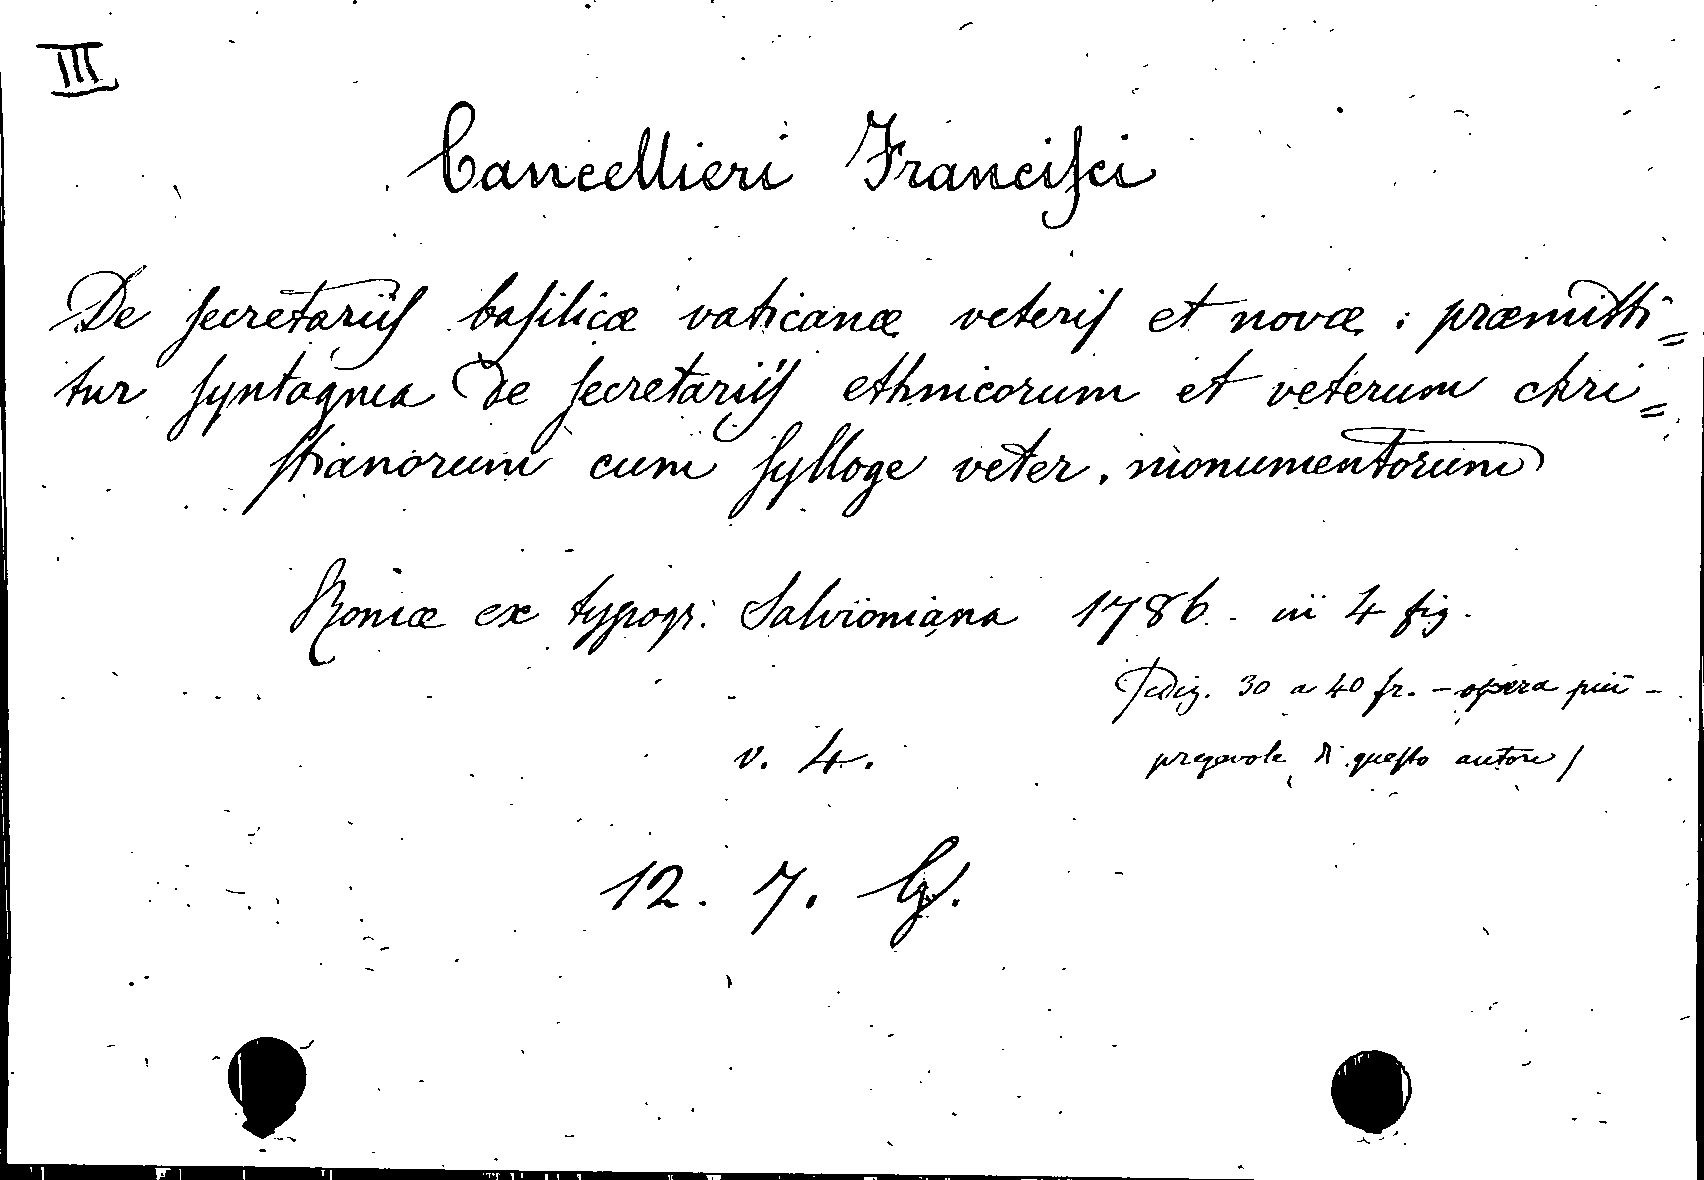 III
Cancellieri Francisci
De secretariis basilicæ vaticanæ veteris et novæ : præmitti=
tur syntagma de secretariis ethnicorum et veterum chri=
stianorum cum sylloge veter. monumentorum
Romæ ex typogr: Salvioniana 1786. in 4 fig.
30 a 40 fr. - opera più -
v. 4.
pregevole di questo autore /
12. 7. G.